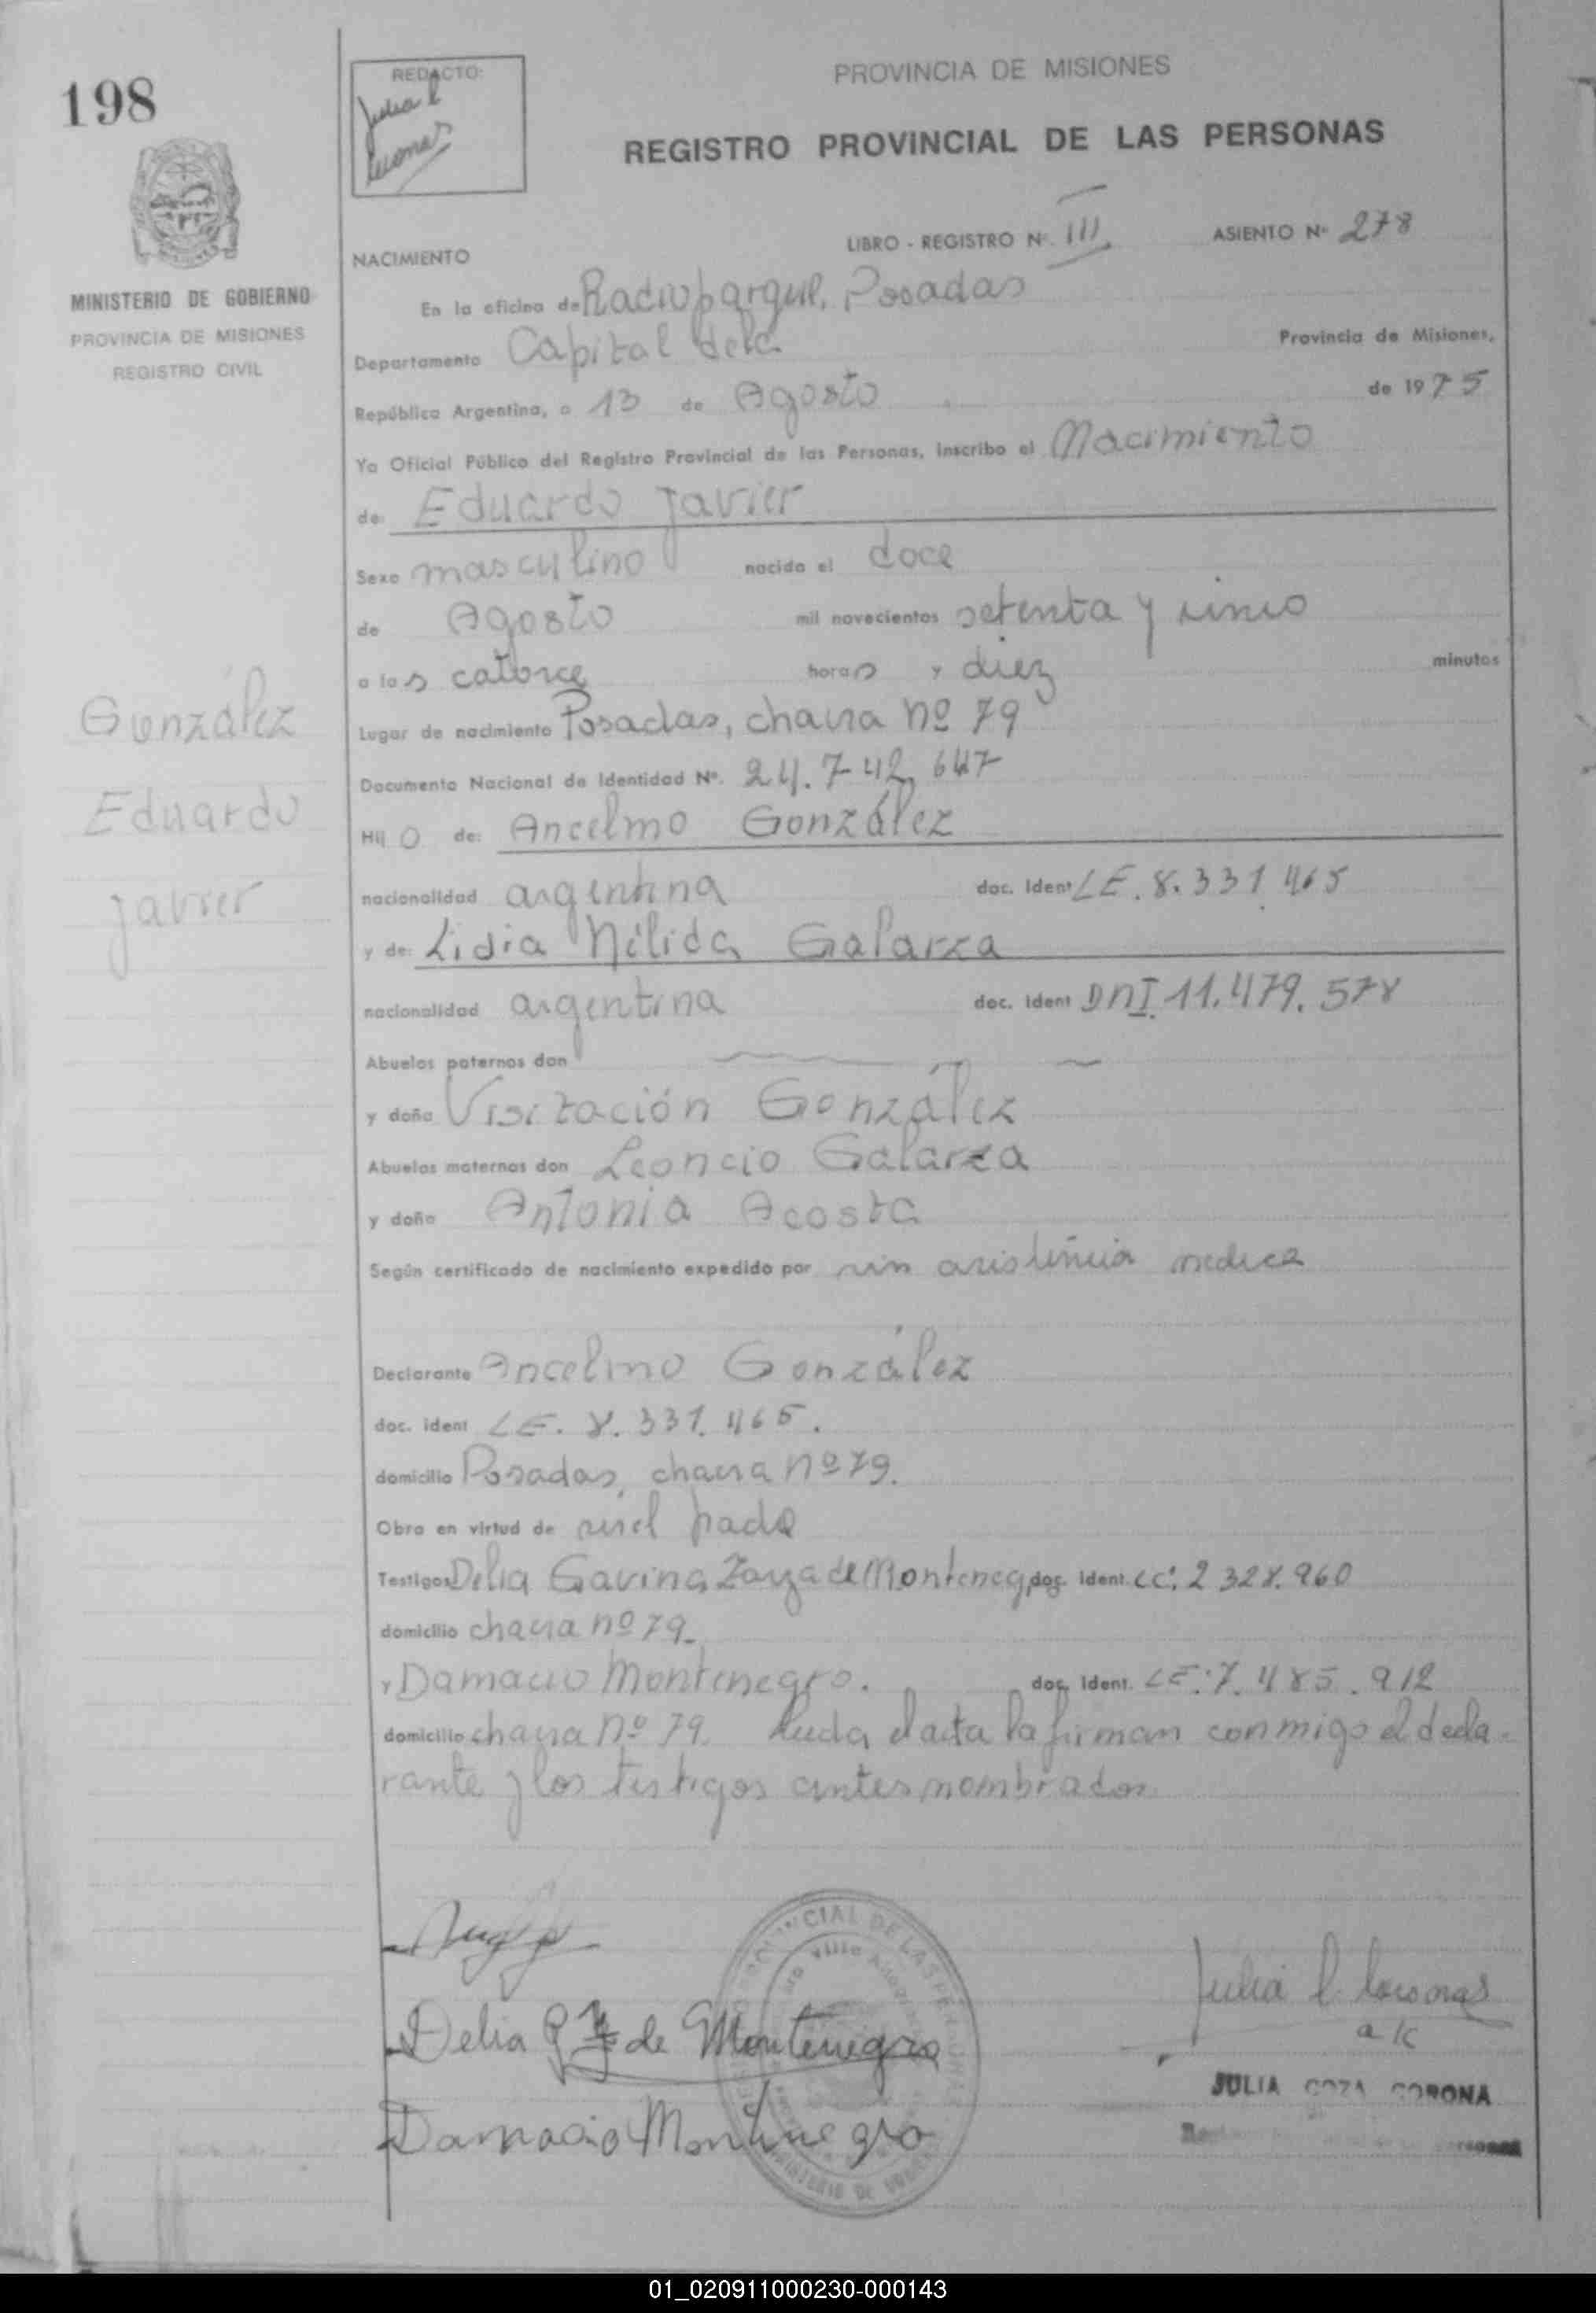 198
REDACTO:
Julia C
PROVINCIA DE MISIONES
REGISTRO PROVINCIAL DE LAS PERSONAS
MINISTERIO DE GOBIERNO
PROVINCIA DE MISIONES
REGISTRO CIVIL
LIBRO - REGISTRO Nº. III ASIENTO Nº 278
NACIMIENTO
En la oficina de Posadas
Departamento Capital dela Provincia de Misiones,
República Argentina, a 13 de Agosto de 1975
Yo Oficial Público del Registro Provincial de las Personas, inscribo el Nacimiento
de: Eduardo Javier
Sexo masculino nacido el doce
de Agosto mil novecientos setenta y cinco
a las catorce horas y diez minutos
Lugar de nacimiento Posadas, chacra nº 79
Documento Nacional de Identidad Nº. 24.742.647
Hij o de: Ancelmo González
nacionalidad argentina doc. Ident LE. 8.331.465
y de: Lidia Nélida Galarza
nacionalidad argentina doc. Ident DNI 11.479.578
Abuelos paternos don
y doña Visitación González
Abuelos maternos don Leoncio Galarza
y doña Antonia Acosta
Según certificado de nacimiento expedido por sin asistencia medica
Declarante Ancelmo González
doc. ident LE. 8.331.465.
domicilio Posadas, chacra nº 79.
Obra en virtud de ser el padre
Testigos Delia Gavina Zarza de Montenegro doc. Ident. LC: 2 328.960
domicilio chacra nº 79.
y Damacio Montenegro. doc. Ident. LE: 7.485.912
domicilio chacra nº 79. Leida el acta la firman conmigo el decla-
rante y los testigos antes nombrados
González
Eduardo
Javier
Delia G Z de Montenegro
Damacio Montenegro
a/c
JULIA COZA CORONA
01_020911000230-000143